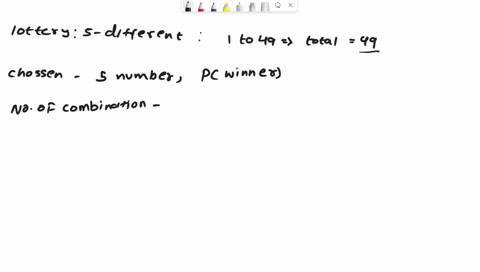 lottery: 5-different : 1 to 49 => total = 49
chossen - 5 number, P(winner)
No. of combination -